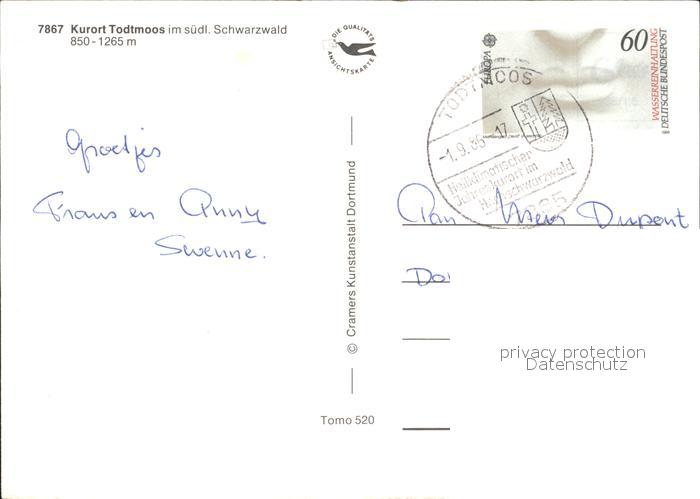 7867 Kurort Todtmoos im südl. Schwarzwald
850-1265 m
DIE QUALITÄTS
ANSICHTSKARTE
Groetjes
Frans en Anny
Swenne.
© Cramers Kunstanstalt Dortmund
Tomo 520
EUROPA
60
WASSERREINHALTUNG
DEUTSCHE BUNDESPOST
TODTMOOS
-1.9.86-17
Heilklimatischer
Jahreskurort im
Hochschwarzwald
Dupont
privacy protection
Datenschutz